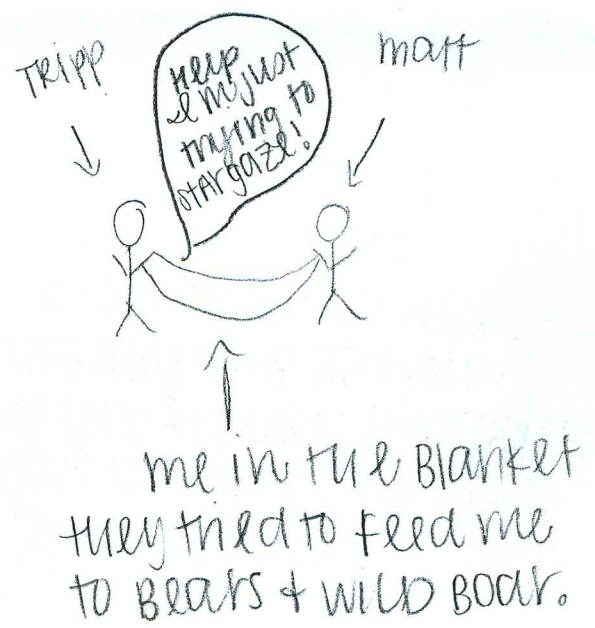 TRIPP
matt
HELP
I'm just
trying to
stargaze!
me in the Blanket
they tried to feed me
to Bears + wild Boar.